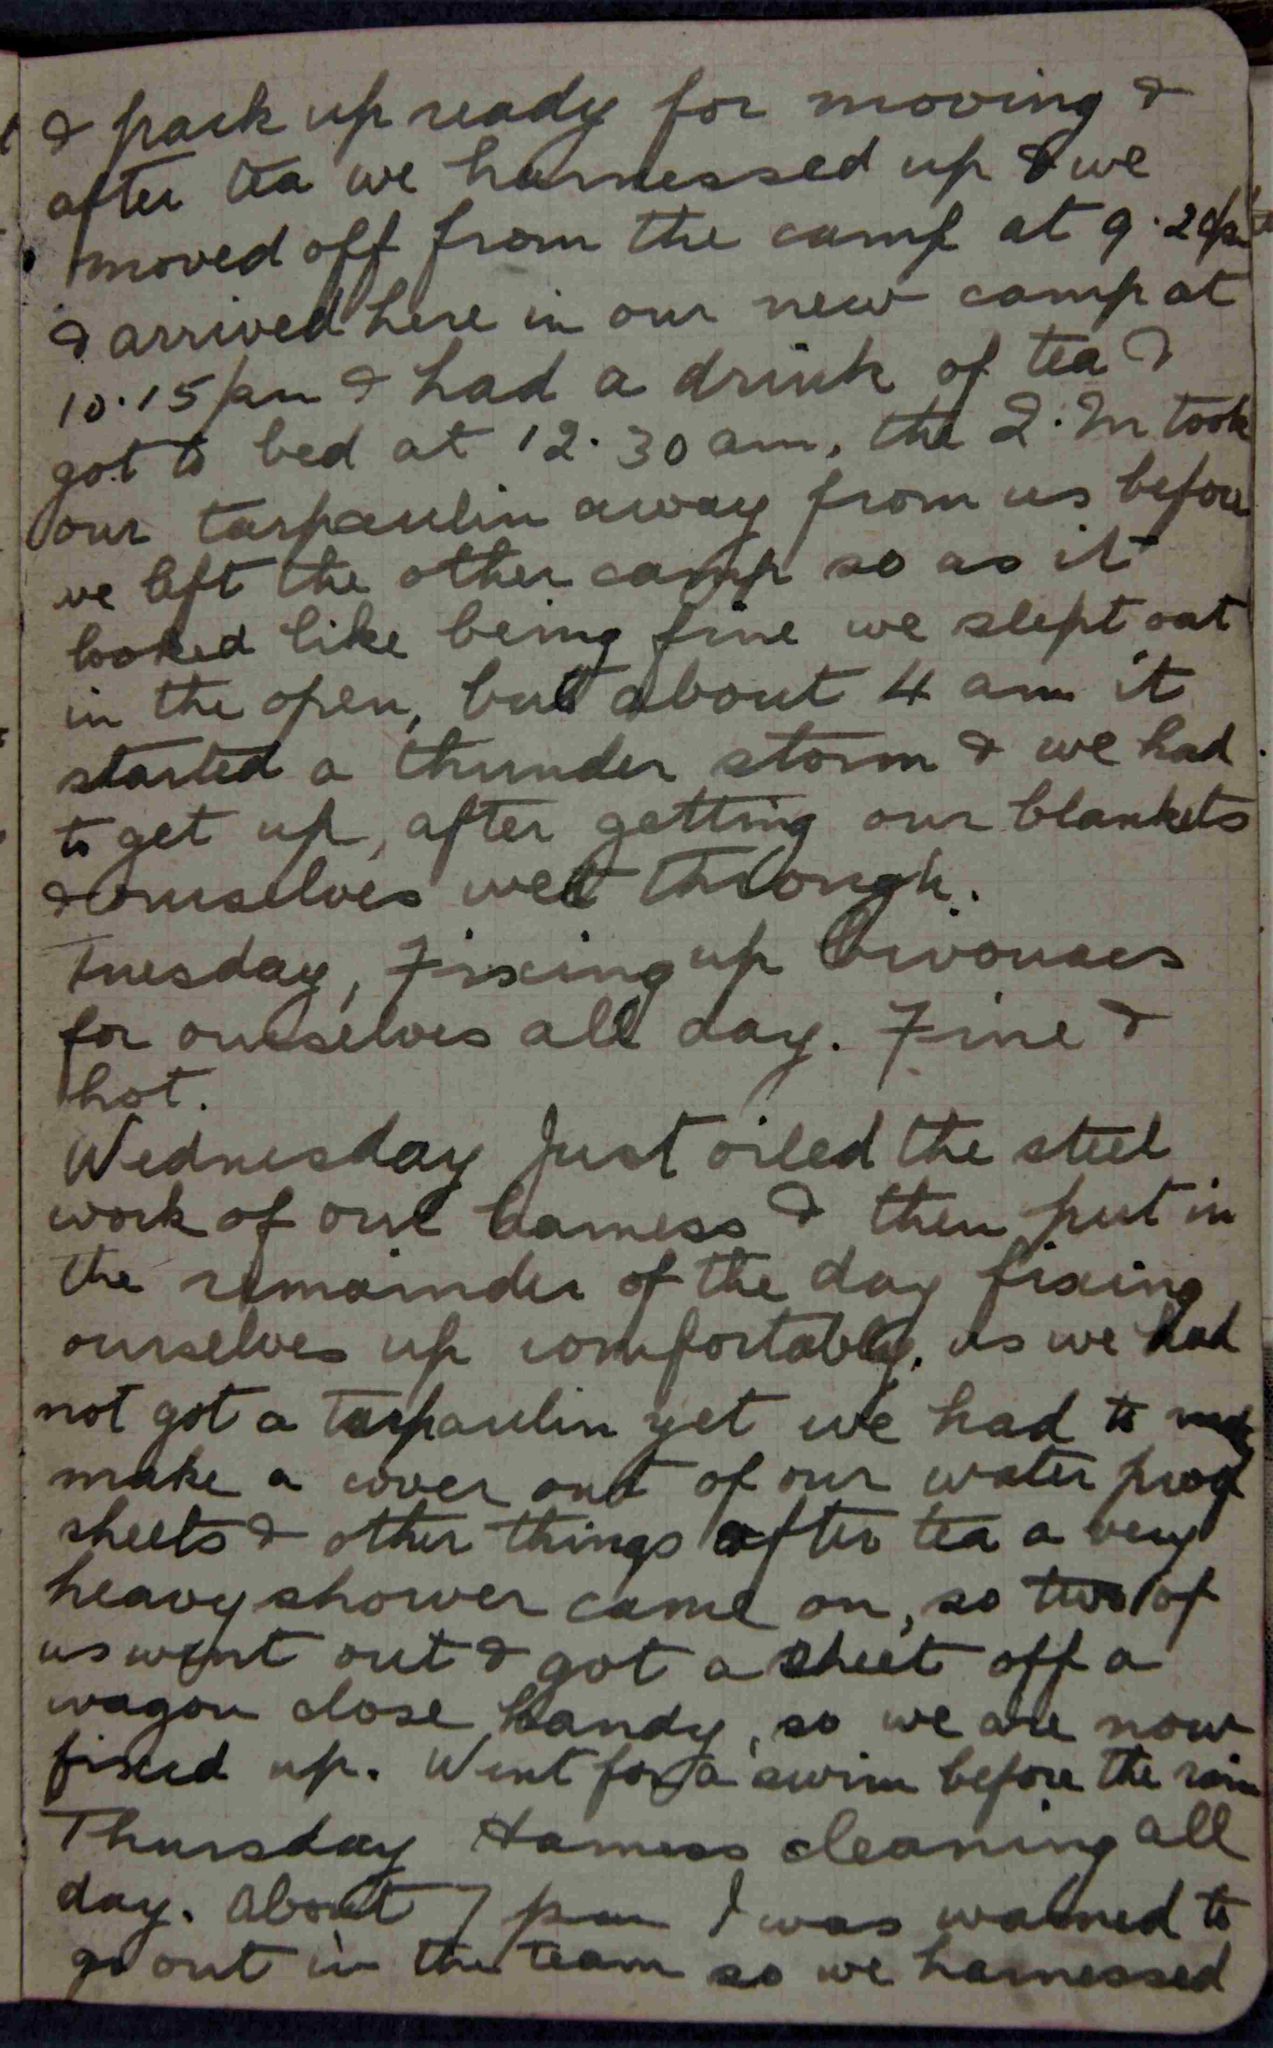 & pack up ready for moving &
after tea we harnessed up & we
moved off from the camp at 9.20pm
& arrived here in our new camp at
10.15pm & had a drink of tea &
got to bed at 12.30 am, the Q.M took
our tarpaulin away from us before
we left the other camp so as it
looked like being fine we slept out
in the open, but about 4 am it
started a thunder storm & we had
to get up, after getting our blankets
& ourselves wet through.
Tuesday, Fixing up bivouacs
for ourselves all day. Fine &
hot.
Wednesday Just oiled the steel
work of our harness & then put in
the remainder of the day fixing
ourselves up comfortably, as we had
not got a tarpaulin yet we had to
make a cover out of our water proof
sheets & other things after tea a very
heavy shower came on, so two of
us went out & got a sheet off a
wagon close handy, so we are now
fixed up. Went for a swim before the rain
Thursday Harness cleaning all
day. About 7 pm I was warned to
go out in the team so we harnessed